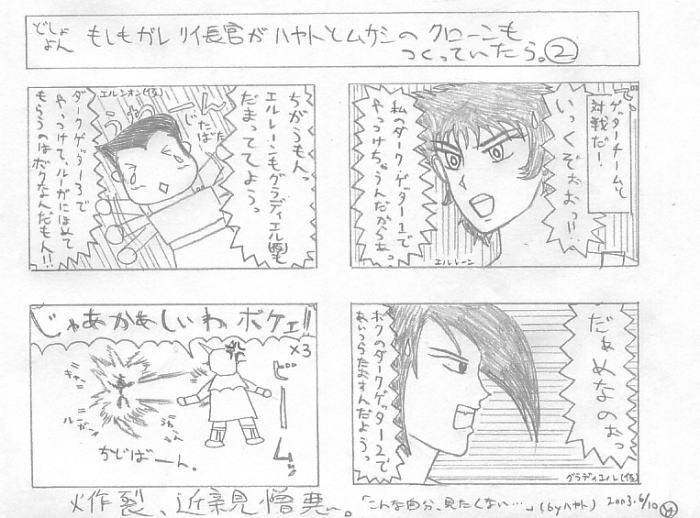 どしょ
よん
もしもガレリイ長官がハヤトとムサシのクローンも
つくっていたら。②
で、
ゲッターチームと
対戦だー。
いっくぞぉおっ!!
私のダーク・ゲッター1で
やっつけちゃうんだからぁっ
エルレーン
だぁめなのぉっ
ボクのダークゲッター2で
あいつらたおすんだようっ
グラディエル(仮)
ちがうもんっ
エルレーンもグラディエル(仮)も
だまっててようっ
うわーーん
じたばた
エルシオン(仮)
ダークゲッター3で
やっつけて、ルーガにほめて
もらうのはボクなんだもん!!
じゃあかあしいわボケェ!!
×3
ビーーム。
キャー
ルーガー
ちどばーん。
炸裂、近親憎悪〜。
「こんな自分、見たくない…」(byハヤト)
2003.6/10